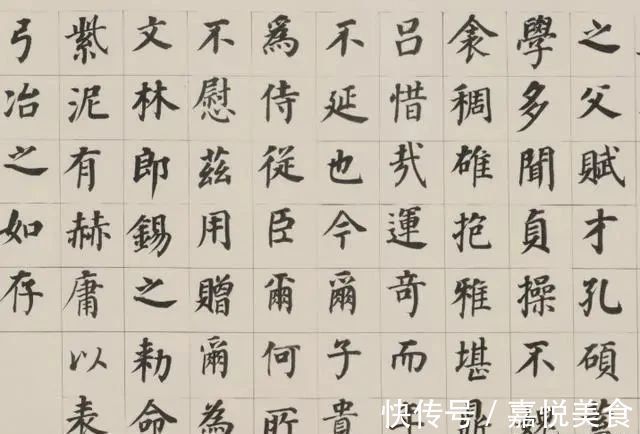 之父賦才孔碩
學多聞貞操不
衾稠雖抱雅堪
呂惜哉運奇而
不延也今爾子貴
為侍從臣爾何所
不慰茲用贈爾為
文林郎錫之勑命
紫泥有赫庸以表
弓冶之如存
快传号／嘉悦美食